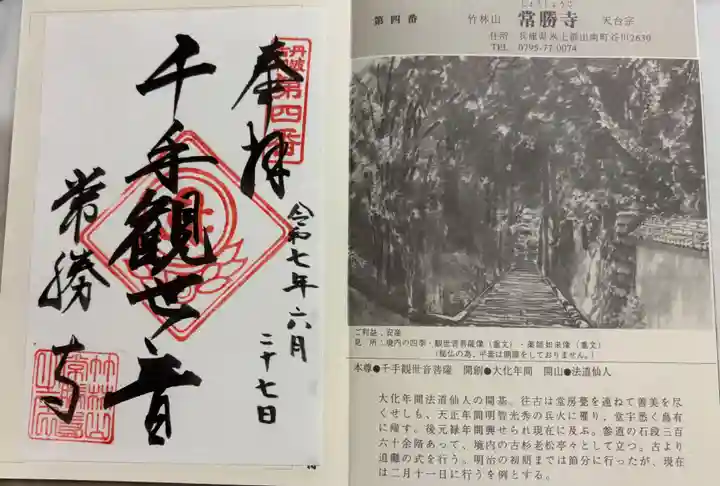 奉拝
丹波
第四番
千手観世音
常勝寺
令和七年六月
二十七日
第四番
竹林山
じょうしょうじ
常勝寺
天台宗
住所 兵庫県氷上郡山南町谷川2630
TEL 0795-77-0074
ご利益:安産
見 所:境内の四季・観世音菩薩像(重文)・薬師如来像(重文)
(秘仏の為、平素は開扉をしておりません。)
本尊●千手観世音菩薩 開創●大化年間 開山●法道仙人
大化年間法道仙人の開基。往古は堂房甍を連ねて善美を尽
くせしも、天正年間明智光秀の兵火に罹り、堂宇悉く烏有
に帰す。後元禄年間興せられ現在に及ぶ。参道の石段三百
六十余階あって、境内の古杉老松亭々として立つ。古より
追儺の式を行う。明治の初期までは節分に行ったが、現在
は二月十一日に行うを例とする。